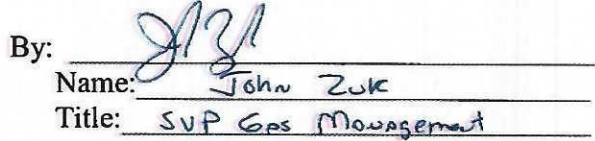 By:
Name: John Zuk
Title: SVP Gas Management